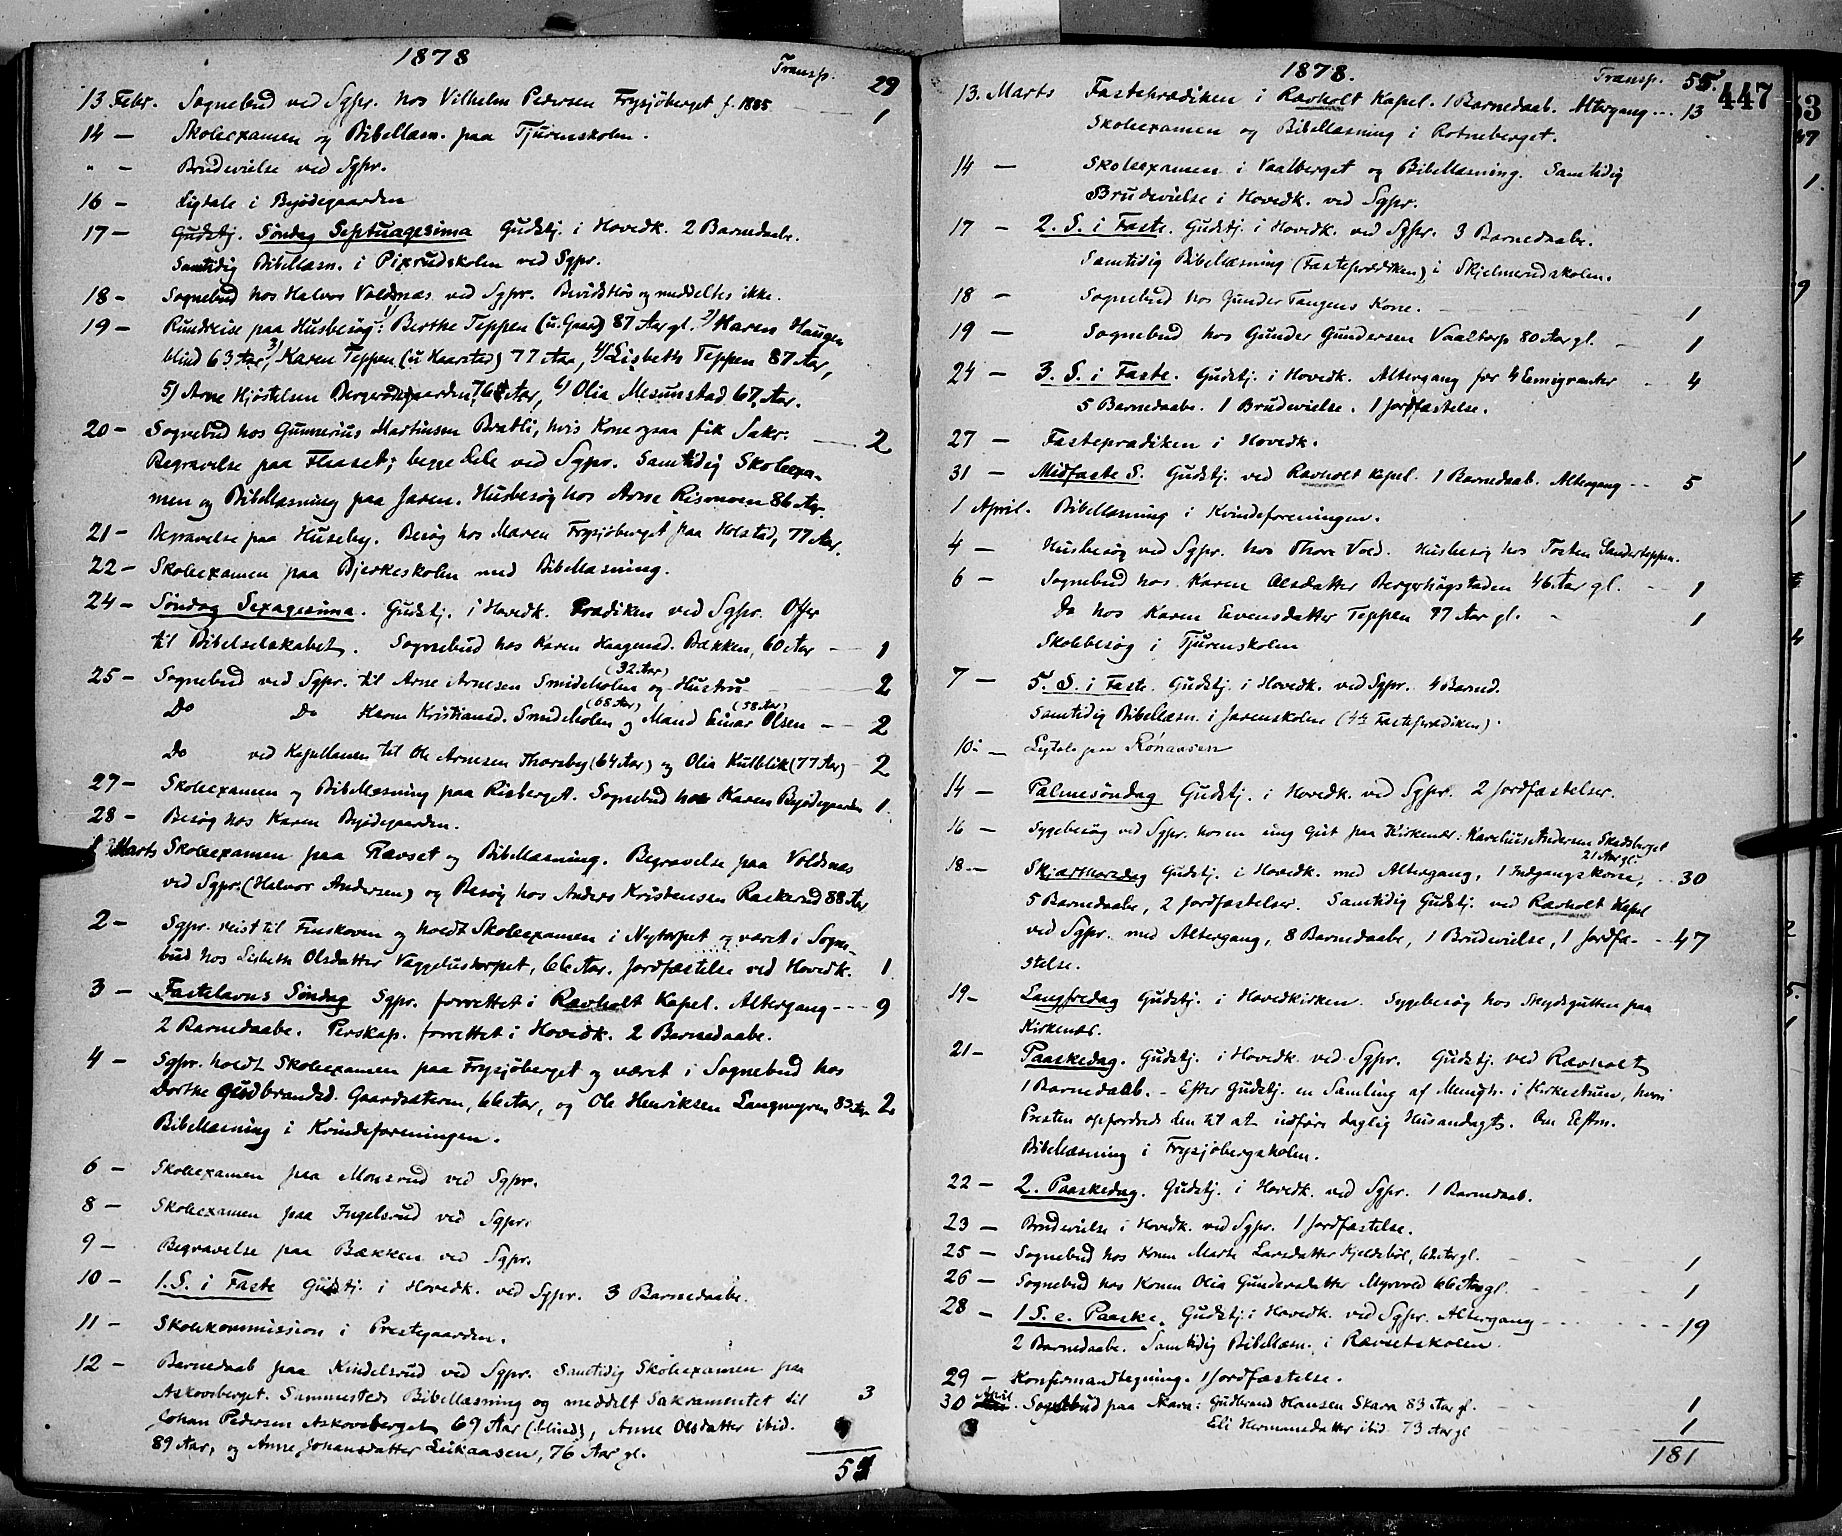 1878
Transp. 29
13 Febr. Sognebud ved Sgpr. hos Vilhelm Pedersen Frysjöberget f. 1835 1
14 – Skoleexamen og Bibellæsn. paa Tjurenskolen.
" – Brudevielse ved Sgpr.
16 – Ligtale i Byödegaarden
17 – Gudstj. Søndag Septuagesima Gudstj. i Hovedk. 2 Barnedaabe.
Samtidig Bibellæsn. i Pixrudskolen ved Sgpr.
18 – Sognebud hos Halvor Voldsnæs ved Sgpr. Bevidstlös og meddeltes ikke.
19 – Rundreise paa Husbesög: 1) Berthe Teppen (u. Gaard) 87 Aar gl. 2) Karen Haugen
blind 63 Aar, 3) Karen Teppen (u. Haarstad) 77 Aar, 4) Lisbeth Teppen 87 Aar,
5) Arne Kjöstelsen Bergerödegaarden, 76 Aar, 6) Olia Mesunstad 67 Aar.
20 – Sognebud hos Gunnerius Martinsen Bratli, hvis Kone ogsaa fik Sakr. 2
Begravelse paa Flaset; begge Dele ved Sgpr. Samtidig Skoleexa-
men og Bibellæsning paa Jaren. Husbesög hos Arne Rismoen 86 Aar.
21 – Begravelse paa Huseby. Besög hos Maren Frysjöberget paa Holstad, 77 Aar.
22 – Skoleexamen paa Bjerkeskolen med Bibellæsning.
24 – Søndag Sexagesima. Gudstj. i Hovedk. Prædiken ved Sgpr. Offer
til Bibelselskabet. Sognebud hos Karen Haagensd. Bækken, 60 Aar – 1
25 – Sognebud ved Sgpr. til Arne Arnesen Smideholen (32 Aar) og Hustru 2
Do Do Karen Kristiansd. Smideholen (68 Aar) og Mand Einar Olsen (58 Aar) – 2
Do ved Kapellanen til Ole Arnesen Thorsby (64 Aar) og Olia Kulblik (77 Aar) – 2
27 – Skoleexamen og Bibellæsning paa Risberget. Sognebud hos Karen Byödegaarden 1.
28 – Besög hos Karen Byödegaarden.
1 Marts Skoleexamen paa Rævset og Bibellæsning. Begravelse paa Voldsnæs
ved Sgpr. (Halvor Andersen) og Besög hos Anders Kristensen Raskerud 88 Aar
2 – Sgpr. reist til Finskoven og holdt Skoleexamen i Nytorpet og været i Sogne-
bud hos Lisbeth Olsdatter Vaggelustorpet, 66 Aar. Jordfæstelse ved Hovedk. 1
3 – Fastelavns Søndag Sgpr. forrettet i Ravholt Kapel. Altergang – 9
2 Barnedaabe. Perskap. forrettet i Hovedk. 2 Barnedaabe.
4 – Sgpr. holdt Skoleexamen paa Frysjöberget og været i Sognebud hos
Dorthe Gudbrandsd. Gaardsæteren, 66 Aar, og Ole Henriksen Langmyren 83 Aar 2
Bibellæsning i Kvindeforeningen.
6 – Skoleexamen paa Monsrud ved Sgpr.
8 – Skoleexamen paa Ingelsrud ved Sgpr.
9 – Begravelse paa Bækken ved Sgpr.
10 – 1. S. i Faste Gudstj. i Hovedk. ved Sgpr. 3 Barnedaabe.
11 – Skolekommission i Prestegaarden.
12 – Barnedaab paa Kindelsrud ved Sgpr. Samtidig Skoleexamen paa
Askovsberget. Sammesteds Bibellæsning og meddelt Sakramentet til 3
Johan Pedersen Askovsberget, 69 Aar (blind), Anne Olsdatter ibid.
89 Aar, og Anne Johansdatter Leikaasen, 76 Aar gl.
1878.
Transp. 55.
447
13. Marts Fasteprædiken i Ravholt Kapel. 1 Barnedaab. Altergang – 13
Skoleexamen og Bibellæsning i Rotneberget.
14 – Skoleexamen i Vaalberget og Bibellæsning. Samtidig
Brudevielse i Hovedk. ved Sgpr.
17 – 2. S. i Faste. Gudstj. i Hovedk. ved Sgpr. 3 Barnedaabe.
Samtidig Bibellæsning (Fasteprædiken) i Skjelmerudskolen.
18 – Sognebud hos Gunder Tangens Kone. 1
19 – Sognebud hos Gunder Gundersen Vaaltorp 80 Aar gl. – 1
24 – 3. S. i Faste. Gudstj. i Hovedk. Altergang for 4 Emigranter – 4
5 Barnedaabe. 1 Brudevielse. 1 Jordfæstelse.
27 – Fasteprædiken i Hovedk.
31 – Midfaste S. Gudstj. ved Ravholt Kapel. 1 Barnedaab. Altergang – 5
1 April. Bibellæsning i Kvindeforeningen.
4 – Husbesög ved Sgpr. hos Thore Vold. Husbesög hos Torsten Sanderteppen.
6 – Sognebud hos Karen Olsdatter Bergerhögstaden 46 Aar gl. – 1
Do hos Karen Evensdatter Teppen 77 Aar gl. – 1
Skolebesög i Tjurenskolen
7 – 5. S. i Faste. Gudstj. i Hovedk. ved Sgpr. 4 Barned.
Samtidig Bibellæsn. i Jarenskolen (4de Fasteprædiken).
10 – Ligtale paa Rönaasen
14 – Palmesöndag Gudstj. i Hovedk. ved Sgpr. 2 Jordfæstelser.
16 – Sygebesög ved Sgpr. hos en ung Gut paa Kirkenær: Karelius Andersen Skadsberget
21 Aar gl.
18 – Skjærthorsdag Gudstj. i Hovedk. med Altergang, 1 Indgangskone, – 30
5 Barnedaabe, 2 Jordfæstelser. Samtidig Gudstj. ved Ravholt Kapel
ved Sgpr. med Altergang, 8 Barnedaabe, 1 Brudevielse, 1 Jordfæ- – 47
stelse.
19 – Langfredag Gudstj. i Hovedkirken. Sygebesög hos Skydsgutten paa
Kirkenær.
21 – Paaskedag. Gudstj. i Hovedk. ved Sgpr. Gudstj. ved Ravholt
1 Barnedaab. – Efter Gudstj. en Samling af Menigh. i Kirkestuen, hvori
Presten opfordrede den til at indföre daglig Husandagt. Om Efterm.
Bibellæsning i Frysjöbergskolen.
22 – 2. Paaskedag. Gudstj. i Hovedk. ved Sgpr. 1 Barnedaab.
23 – Brudevielse i Hovedk. ved Sgpr. 1 Jordfæstelse.
25 – Sognebud hos Konen Marte Larsdatter Kjeldsböl, 62 Aar gl. – 1
26 – Sognebud hos Konen Olia Gundersdatter Myrved 66 Aar gl. – 1
28 – 1 S. e. Paaske. Gudstj. i Hovedk. ved Sgpr. Altergang – 19
2 Barnedaabe. Samtidig Bibellæsn. i Rævsetskolen.
29 – Konfirmandtegning. 1 Jordfæstelse.
30 April. Sognebud paa Skara: Gudbrand Hansen Skara 83 Aar gl. – 1
Eli Hermansdatter ibid. 73 Aar gl 1
181